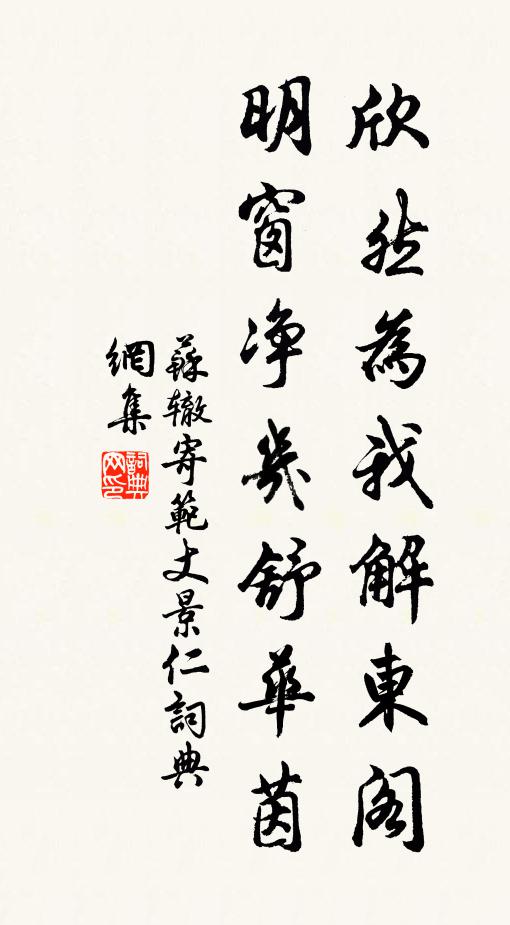 欣然為我解東阁
明窗净幾舒華茵
蘇辙寄範丈景仁詞典
網集
詞典
网印